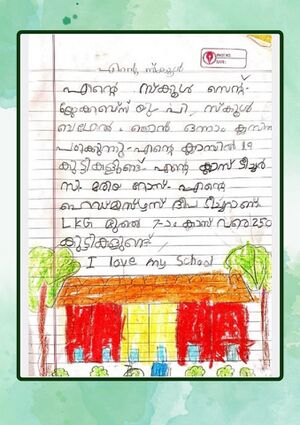 എന്റെ സ്കൂൾ
എന്റെ സ്കൂൾ സെന്റ്-
ജേക്കബ്സ് യു.പി, സ്കൂൾ
ഞാൻ ഒന്നാം ക്ലാസിൽ
പഠിക്കുന്നു. എന്റെ ക്ലാസിൽ 19
കുട്ടികളുണ്ട്. എന്റെ ക്ലാസ് ടീച്ചർ
സി. മരിയ റോസ്. എന്റെ
ഹെഡ്മിസ്ട്രസ് ദീപ ടീച്ചറാണ്.
LKG മുതൽ 7-ാം ക്ലാസ് വരെ 250
കുട്ടികളുണ്ട്
I love my School